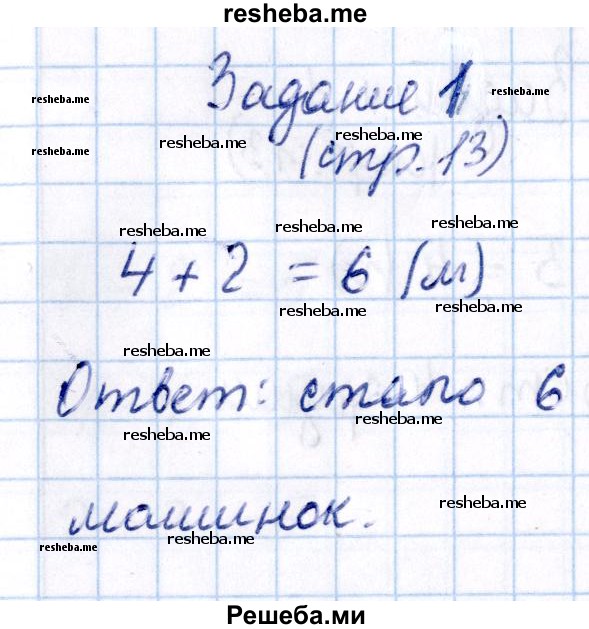 resheba.me
Задание 1
resheba.me
resheba.me
resheba.me
resheba.me
resheba.me
(стр. 13)
resheba.me
resheba.me
resheba.me
4 + 2 = 6 (м)
resheba.me
resheba.me
resheba.me
Ответ: стало 6
resheba.me
resheba.me
машинок.
resheba.me
resheba.me
resheba.me
Решеба.ми